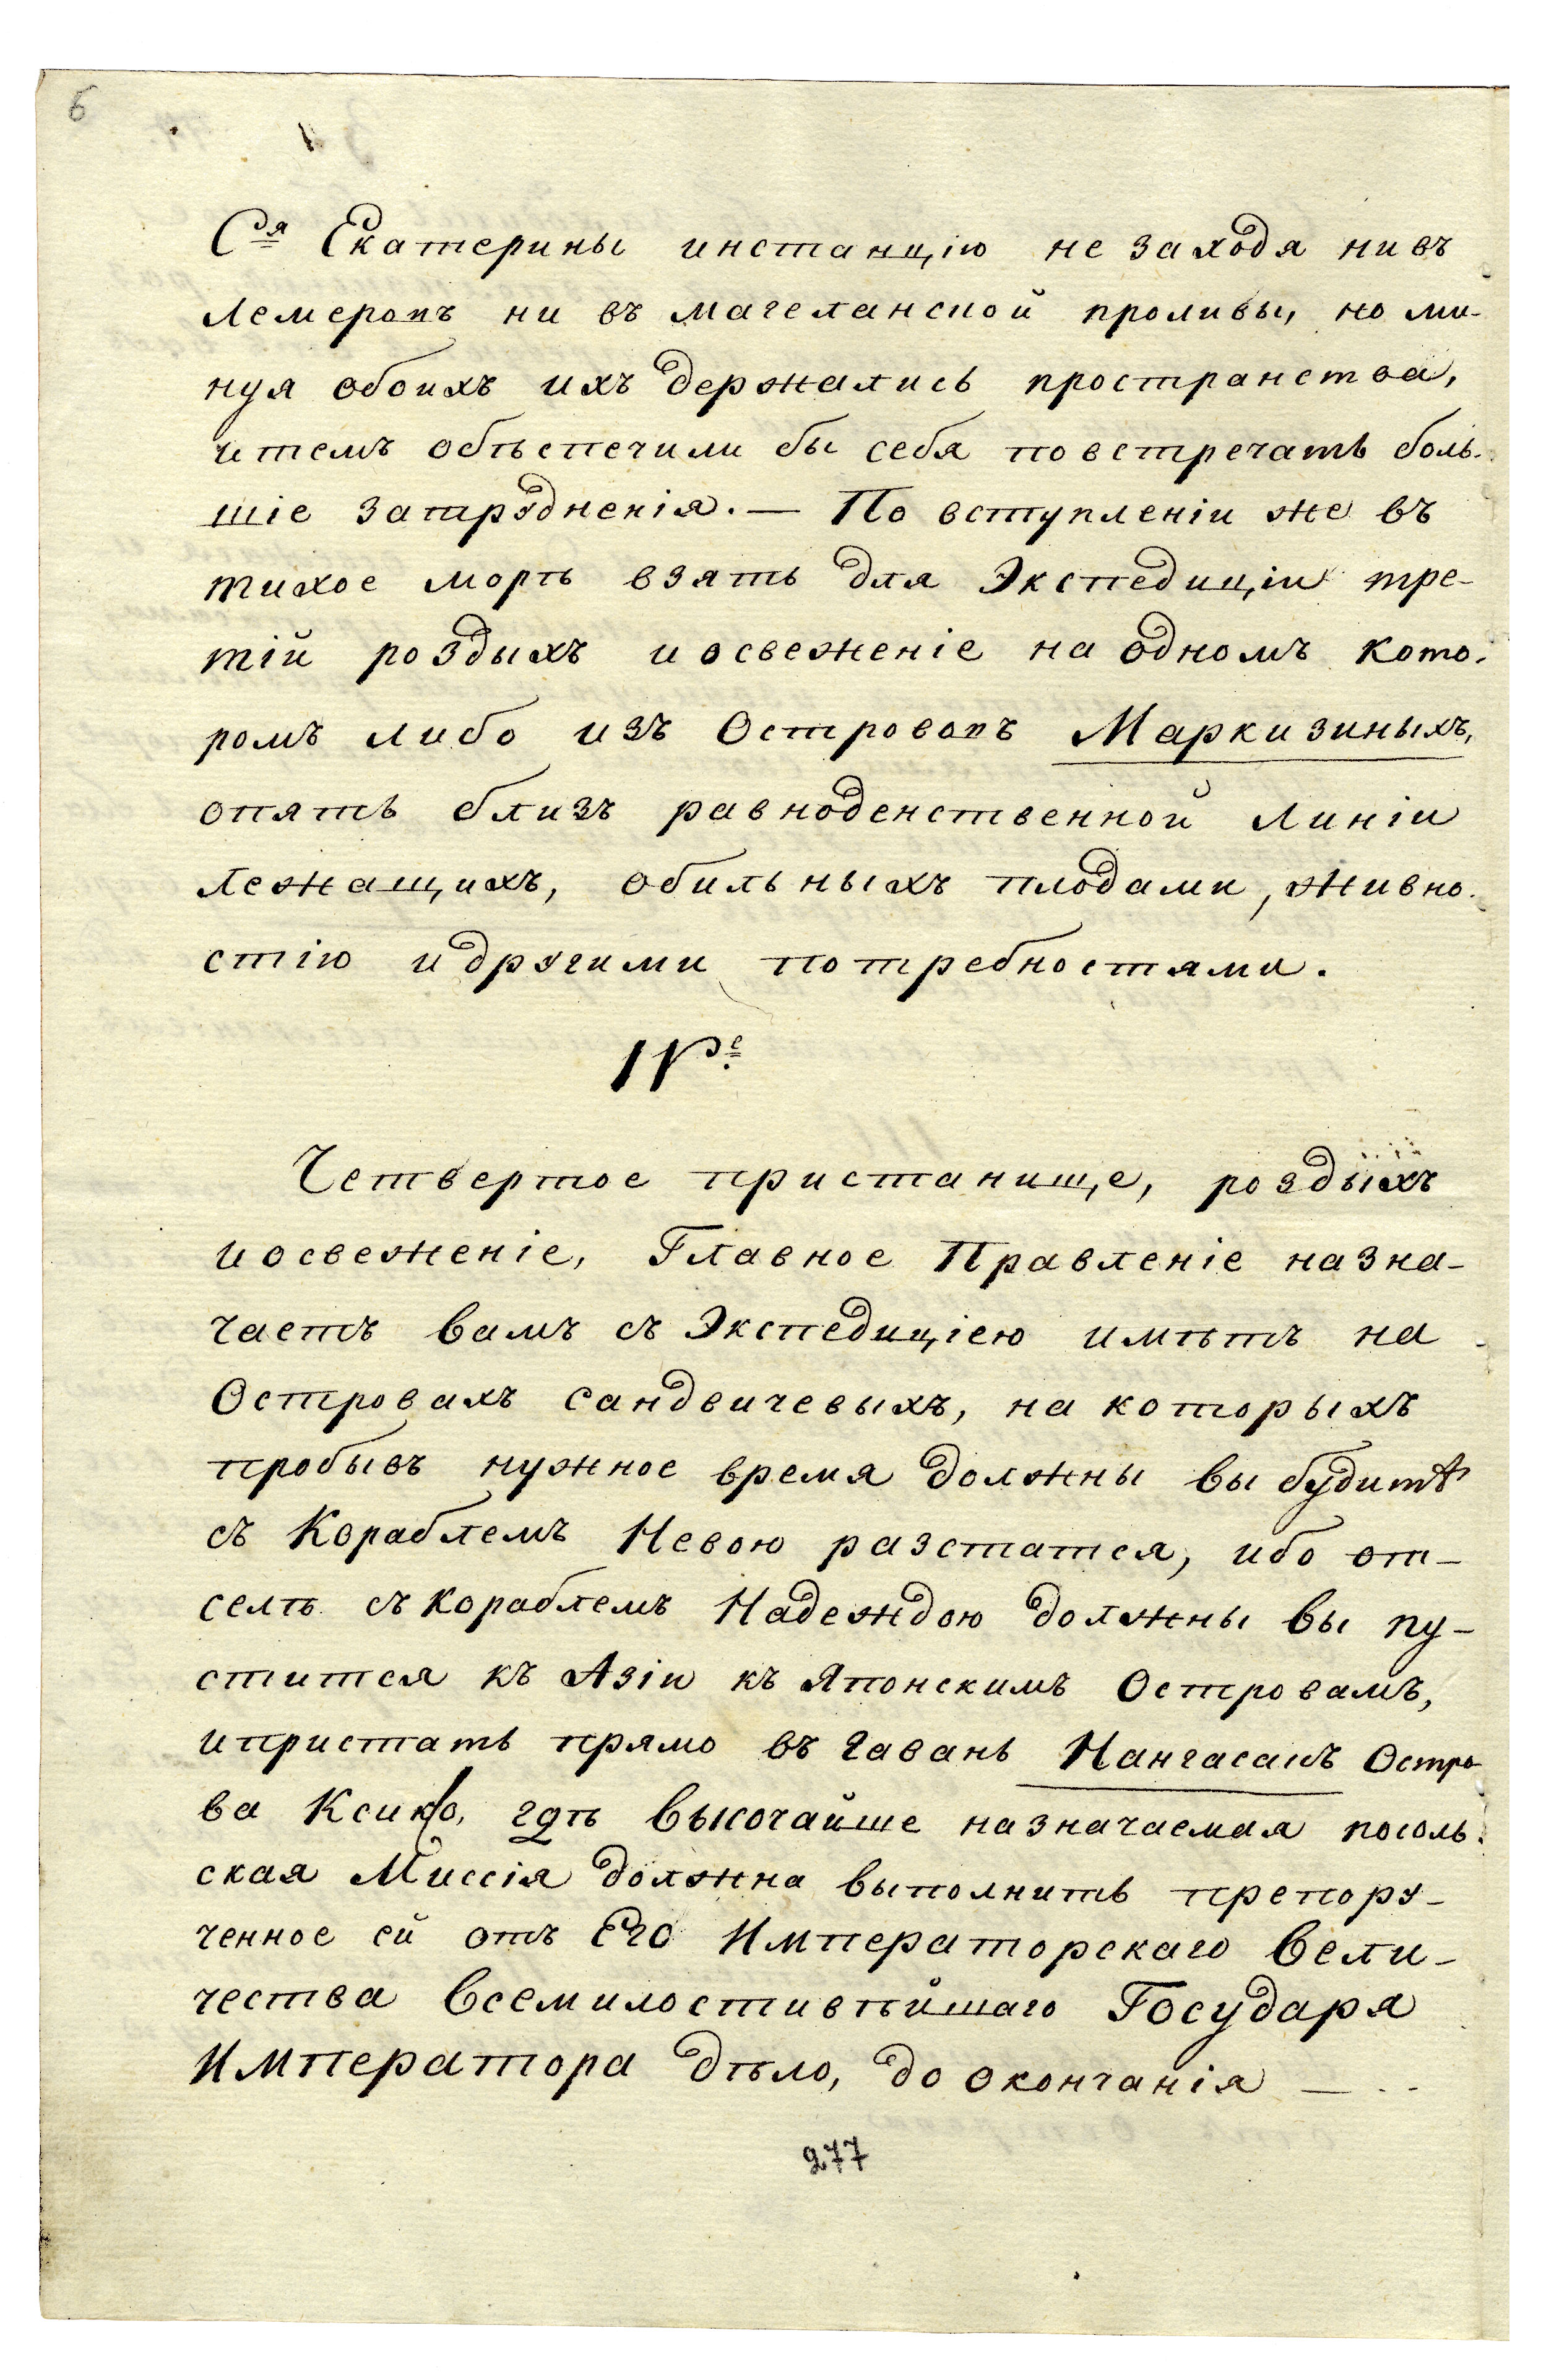 6
Сᵃ Екатерины инстанцію не заходя нивъ
Лемеровъ ни въ магеланской проливы, но ми-
нуя обоихъ ихъ держались пространства,
итемъ обѣспечили бы себя повстречать боль-
шіе затрудненія. — По вступленіи же въ
тихое морѣ взять для Экспедиціи тре-
тій роздыхъ иосвеженіе на одномъ кото-
ромъ либо изъ Острововъ Маркизиныхъ,
опять близъ равноденственной Линіи
лежащихъ, обильныхъ плодами, живно-
стію идругими потребностями.
IVᵉ.
Четвертое пристанище, роздыхъ
иосвеженіе, Главное Правленіе назна-
чаетъ вамъ съ Экспедиціею имѣть на
Островахъ сандвичевыхъ, на которыхъ
пробывъ нужное время должны вы будитѣ
съ Кораблемъ Невою разстатся, ибо от-
селѣ съ кораблемъ Надеждою должны вы пу-
стится къ Азіи къ Японскимъ Островамъ,
ипристать прямо въ гавань Нангасакъ Остро-
ва Ксико, гдѣ высочайше назначаемая посоль-
ская Миссія должна выполнить препору-
ченное ей отъ Его Императорскаго Вели-
чества Всемилостивѣйшаго Государя
Императора дѣло, до окончанія —
277